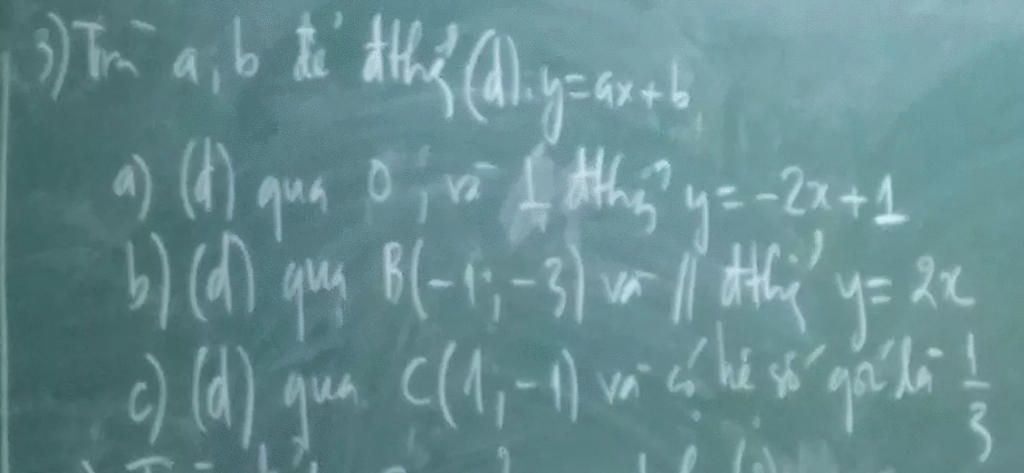 3) Tìm a, b để đthẳng (d): y=ax+b
a) (d) qua O, và ⊥ đthẳng y=-2x+1
b) (d) qua B(-1;-3) và // đthẳng y=2x
c) (d) qua C(1;-1) và có hệ số góc là 1/3